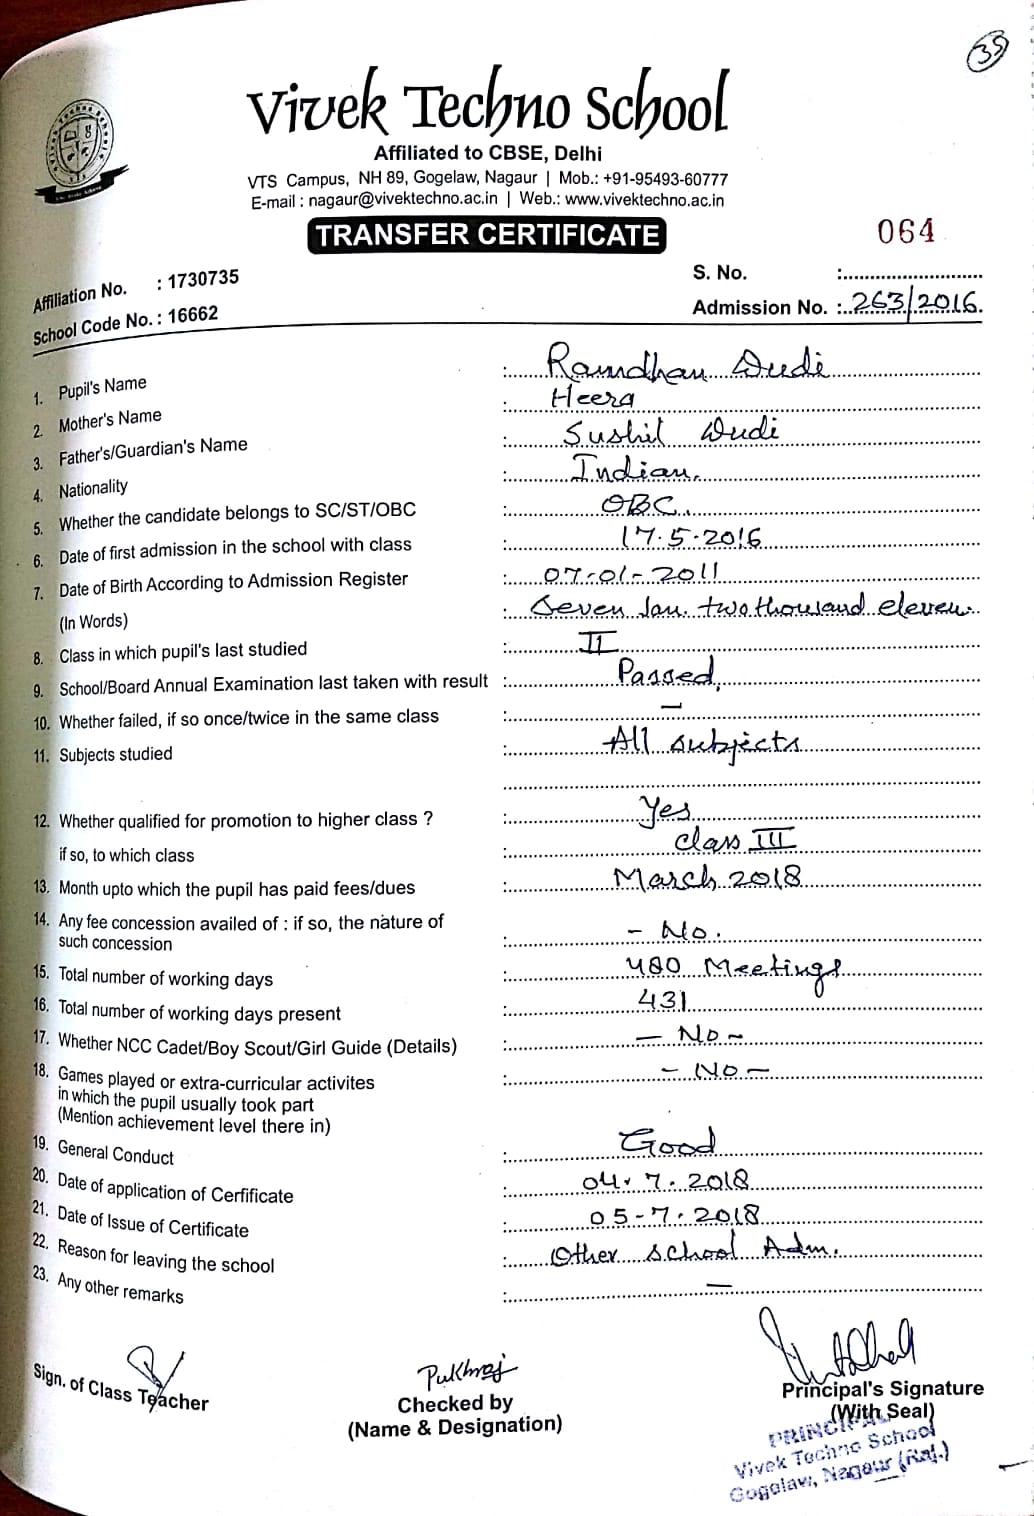 35
Vivek Techno School
Affiliated to CBSE, Delhi
VTS Campus, NH 89, Gogelaw, Nagaur | Mob.: +91-95493-60777
E-mail : nagaur@vivektechno.ac.in | Web.: www.vivektechno.ac.in
TRANSFER CERTIFICATE
064
Affiliation No. : 1730735
S. No. :
School Code No. : 16662
Admission No. : 263/2016.
1. Pupil's Name : Ramdhan Dudi
2. Mother's Name : Heera
3. Father's/Guardian's Name : Sushil Dudi
4. Nationality : Indian.
5. Whether the candidate belongs to SC/ST/OBC : OBC.
6. Date of first admission in the school with class : 17.5.2016
7. Date of Birth According to Admission Register : 07-01-2011
(In Words) : Seven Jan. two thousand eleven.
8. Class in which pupil's last studied : II
9. School/Board Annual Examination last taken with result : Passed,
10. Whether failed, if so once/twice in the same class : —
11. Subjects studied : All subjects
12. Whether qualified for promotion to higher class ? : Yes
if so, to which class : class III
13. Month upto which the pupil has paid fees/dues : March 2018
14. Any fee concession availed of : if so, the nature of
such concession : - No.
15. Total number of working days : 480 Meetings
16. Total number of working days present : 431
17. Whether NCC Cadet/Boy Scout/Girl Guide (Details) : — No ~
18. Games played or extra-curricular activites : - No -
in which the pupil usually took part
(Mention achievement level there in)
19. General Conduct : Good
20. Date of application of Cerfificate : 04.7.2018
21. Date of Issue of Certificate : 05-7.2018
22. Reason for leaving the school : Other school Adm.
23. Any other remarks : —
Sign. of Class Teacher
Pukhraj
Checked by
(Name & Designation)
Principal's Signature
(With Seal)
PRINCIPAL
Vivek Techno School
Gogelaw, Nagaur (Raj.)